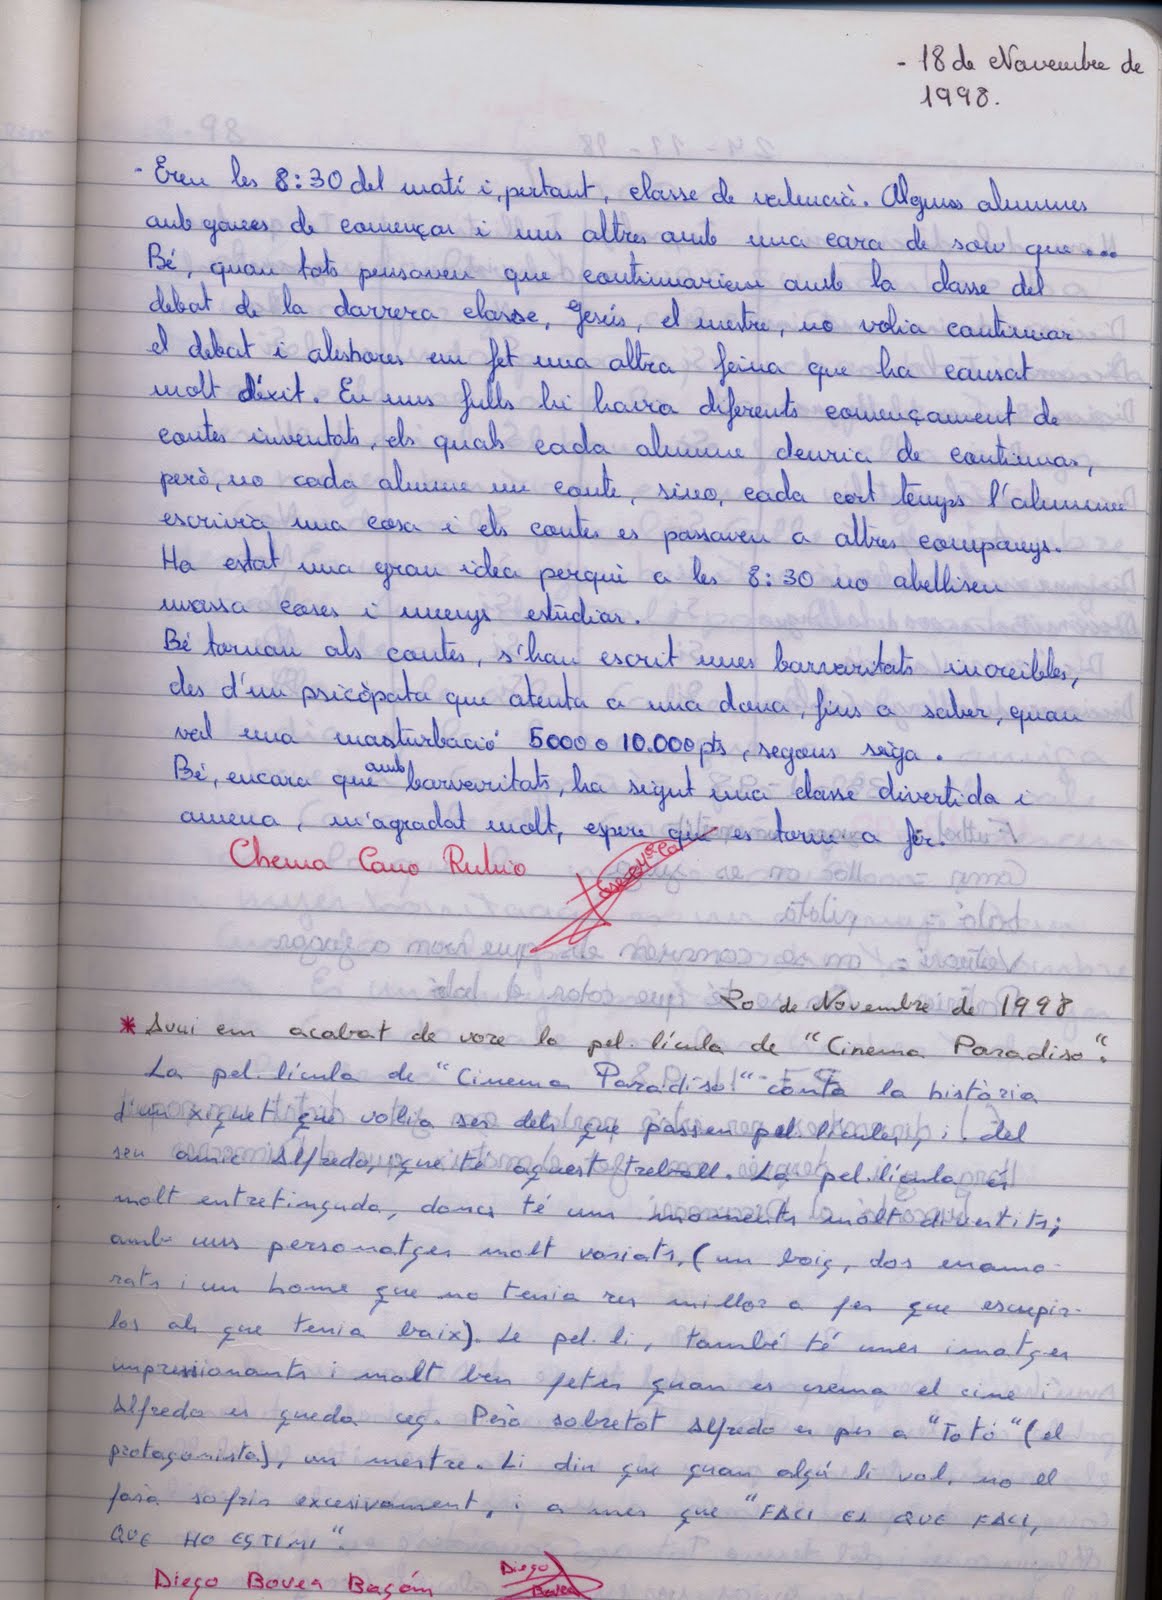 - 18 de Novembre de
1998.
- Eren les 8:30 del matí i, pertant, classe de valencià. Alguns alumnes
amb ganes de començar i uns altres amb una cara de sow que...
Bé, quan tots pensaven que continuariem amb la classe del
debat de la darrera classe, Jesús, el mestre, no volia continuar
el debat i aleshores em fet una altra feina que ha causat
molt d'éxit. En uns fulls hi havia diferents començament de
contes inventats, els quals cada alumne deuria de continuar,
però, no cada alumne un conte, sino, cada cert temps l'alumne
escrivia una cosa i els contes es passaven a altres companys.
Ha estat una gran idea perqui a les 8:30 no abellisen
massa coses i menys estudiar.
Bé tornan als contes, s'han escrit unes barvaritats increibles,
des d'un psicòpata que atenta a una dona, fins a saber, quan
val una masturbació 5000 o 10.000 pts, segons siga.
Bé, encara que amb barvaritats, ha sigut una classe divertida i
amena, m'agradat molt, espere que es torne a fer.
Chema Cano Rubio
20 de Novembre de 1998
* Avui em acabat de vore la pel.lícula de "Cinema Paradiso".
La pel.lícula de "Cinema Paradiso" conta la història
d'un xiquet que volia ser dels que passen pel.lícules, i del
seu amic Alfredo, que té aquest treball. La pel.lícula és
molt entretinguda, doncs té uns moments molt divertits;
amb uns personatges molt variats, (un boig, dos enamo-
rats i un home que no tenia res millor a fer que escupir-
los als que tenia baix). Le pel.li, també té unes imatges
impressionants i molt ben fetes quan es crema el cine i
Alfredo es queda ceg. Però sobretot Alfredo es per a "Totó" (el
protagonista), un mestre. Li diu que quan algú li vol, no el
farà sofrir excesivament, i a mes que "FACI EL QUE FACI,
QUE HO ESTIMI".
Diego Bovea Bagán
Diego
Bovea